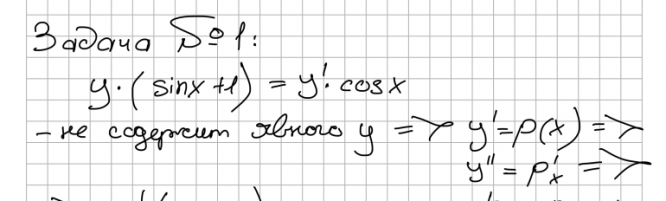 Задача №1:
y·(sinx+1) = y'·cosx
- не содержит явного y => y'=p(x) =>
y''=p'x =>